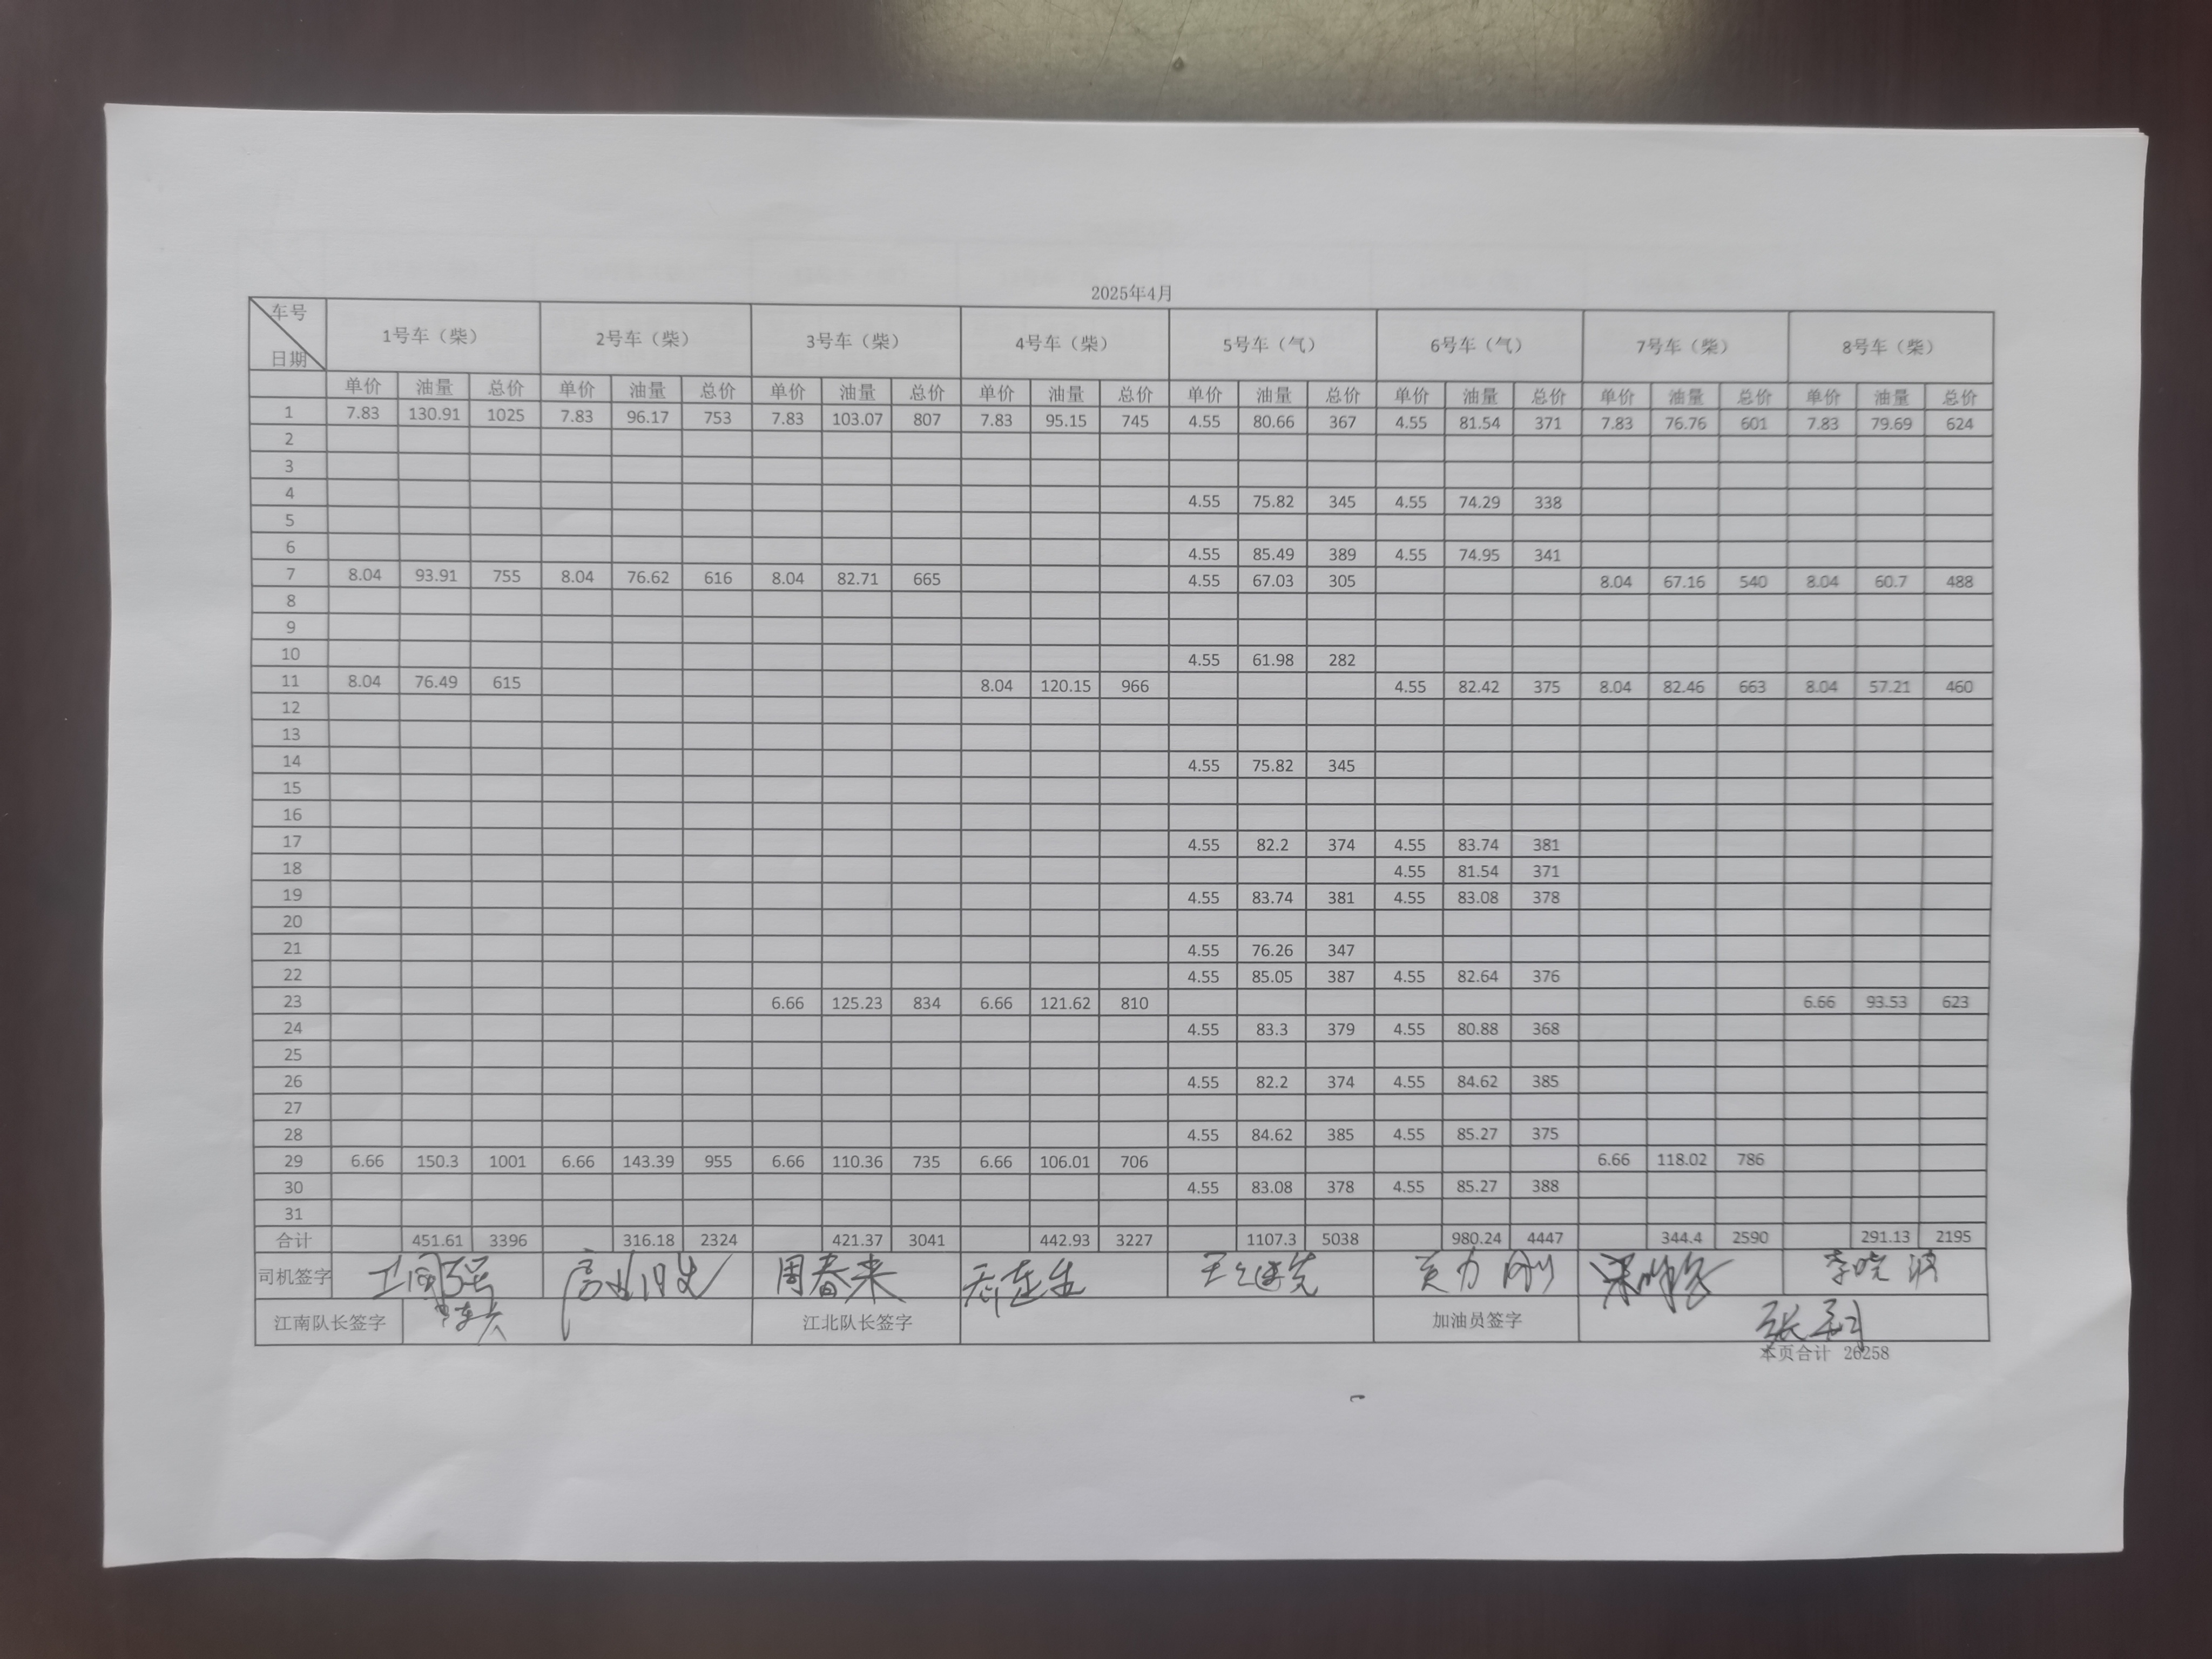 2025年4月
车号 1号车（柴） 2号车（柴） 3号车（柴） 4号车（柴） 5号车（气） 6号车（气） 7号车（柴） 8号车（柴）
日期
单价 油量 总价 单价 油量 总价 单价 油量 总价 单价 油量 总价 单价 油量 总价 单价 油量 总价 单价 油量 总价 单价 油量 总价
1 7.83 130.91 1025 7.83 96.17 753 7.83 103.07 807 7.83 95.15 745 4.55 80.66 367 4.55 81.54 371 7.83 76.76 601 7.83 79.69 624
2
3
4 4.55 75.82 345 4.55 74.29 338
5
6 4.55 85.49 389 4.55 74.95 341
7 8.04 93.91 755 8.04 76.62 616 8.04 82.71 665 4.55 67.03 305 8.04 67.16 540 8.04 60.7 488
8
9
10 4.55 61.98 282
11 8.04 76.49 615 8.04 120.15 966 4.55 82.42 375 8.04 82.46 663 8.04 57.21 460
12
13
14 4.55 75.82 345
15
16
17 4.55 82.2 374 4.55 83.74 381
18 4.55 81.54 371
19 4.55 83.74 381 4.55 83.08 378
20
21 4.55 76.26 347
22 4.55 85.05 387 4.55 82.64 376
23 6.66 125.23 834 6.66 121.62 810 6.66 93.53 623
24 4.55 83.3 379 4.55 80.88 368
25
26 4.55 82.2 374 4.55 84.62 385
27
28 4.55 84.62 385 4.55 85.27 375
29 6.66 150.3 1001 6.66 143.39 955 6.66 110.36 735 6.66 106.01 706 6.66 118.02 786
30 4.55 83.08 378 4.55 85.27 388
31
合计 451.61 3396 316.18 2324 421.37 3041 442.93 3227 1107.3 5038 980.24 4447 344.4 2590 291.13 2195
司机签字 周春来 李晓波
江南队长签字 江北队长签字 加油员签字
本页合计 26258